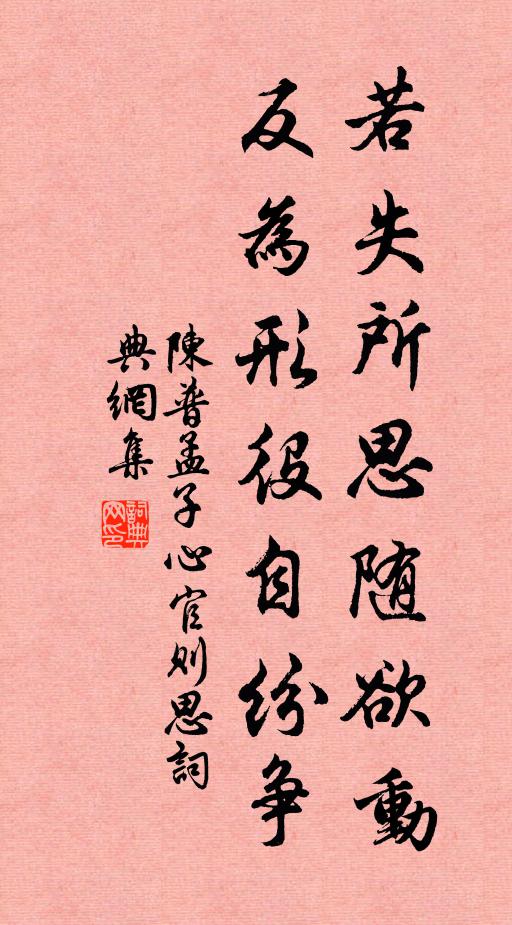 若失所思随欲動
反為形役自紛争
陳普孟子心官則思詞
典網集
詞典
网印